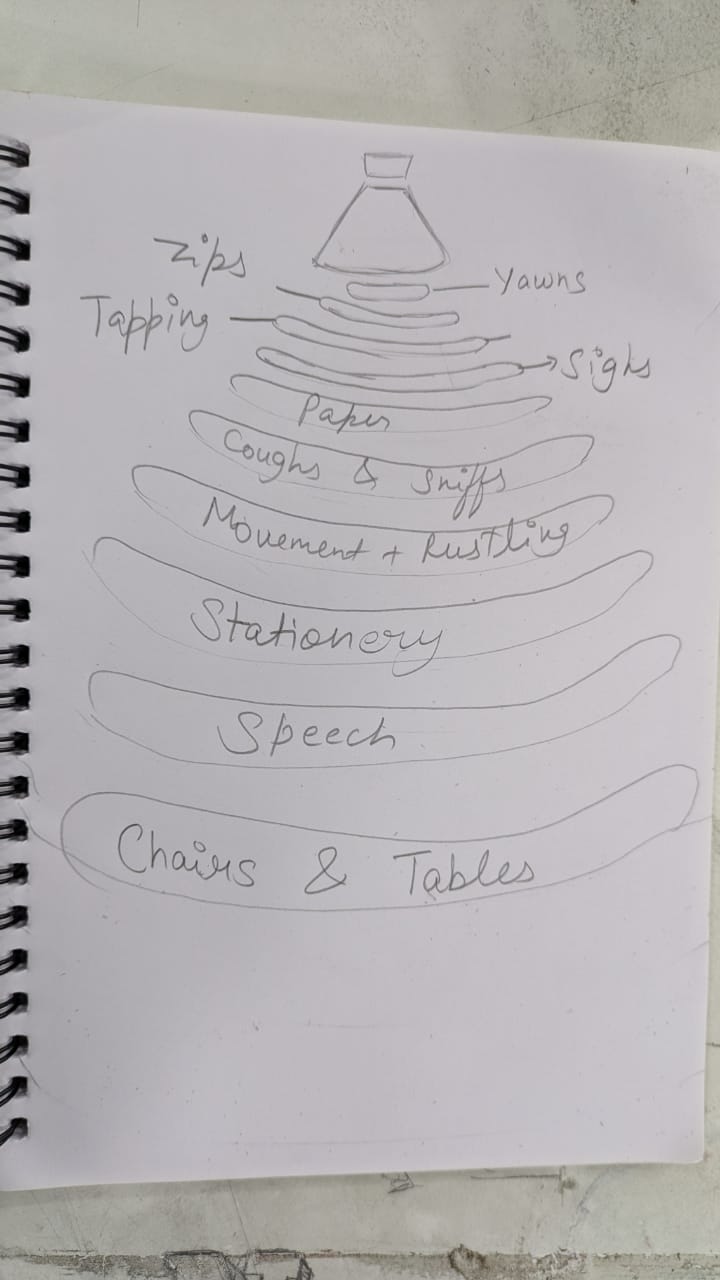 Zips
Yawns
Tapping
Sighs
Paper
Coughs & Sniffs
Movement + Rustling
Stationery
Speech
Chairs & Tables